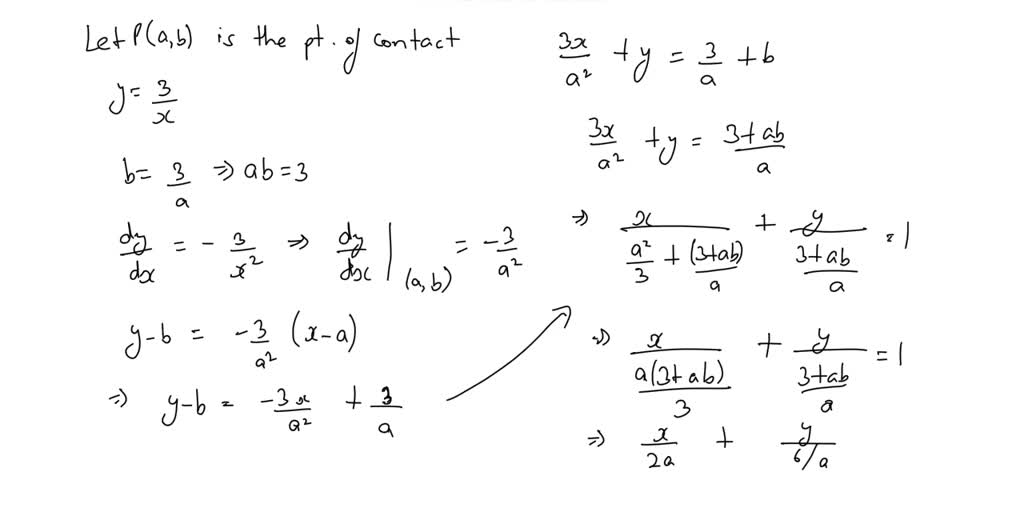 Let P(a,b) is the pt. of contact
y = 3/x
b = 3/a ⇒ ab = 3
dy/dx = - 3/x² ⇒ dy/dx |(a,b) = -3/a²
y-b = -3/a² (x-a)
⇒ y-b = -3x/a² + 3/a
3x/a² + y = 3/a + b
3x/a² + y = 3+ab/a
⇒ x/(a²/3 + (3+ab)/a) + y/(3+ab/a) = 1
⇒ x/(a(3+ab)/3) + y/(3+ab/a) = 1
⇒ x/2a + y/(6/a)